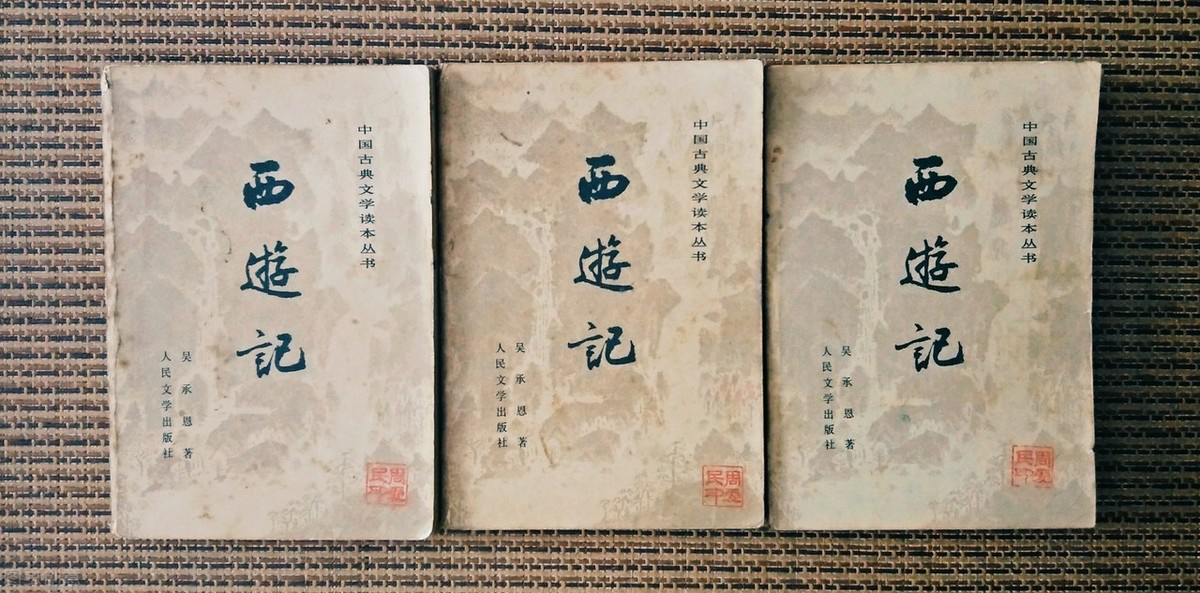 中国古典文学读本丛书
西遊記
吴承恩著
人民文学出版社
中国古典文学读本丛书
西遊記
吴承恩著
人民文学出版社
中国古典文学读本丛书
西遊記
吴承恩著
人民文学出版社